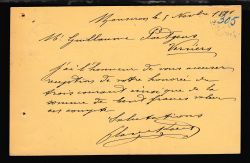 Mouscron le 5 Novbre 1891
305
Mr. Guillaume
Verviers
J'ai l'honneur de vous accuser
réception de votre honorée de
trois courant ainsi que de la
somme de cent francs valeur
en compte
Salutations